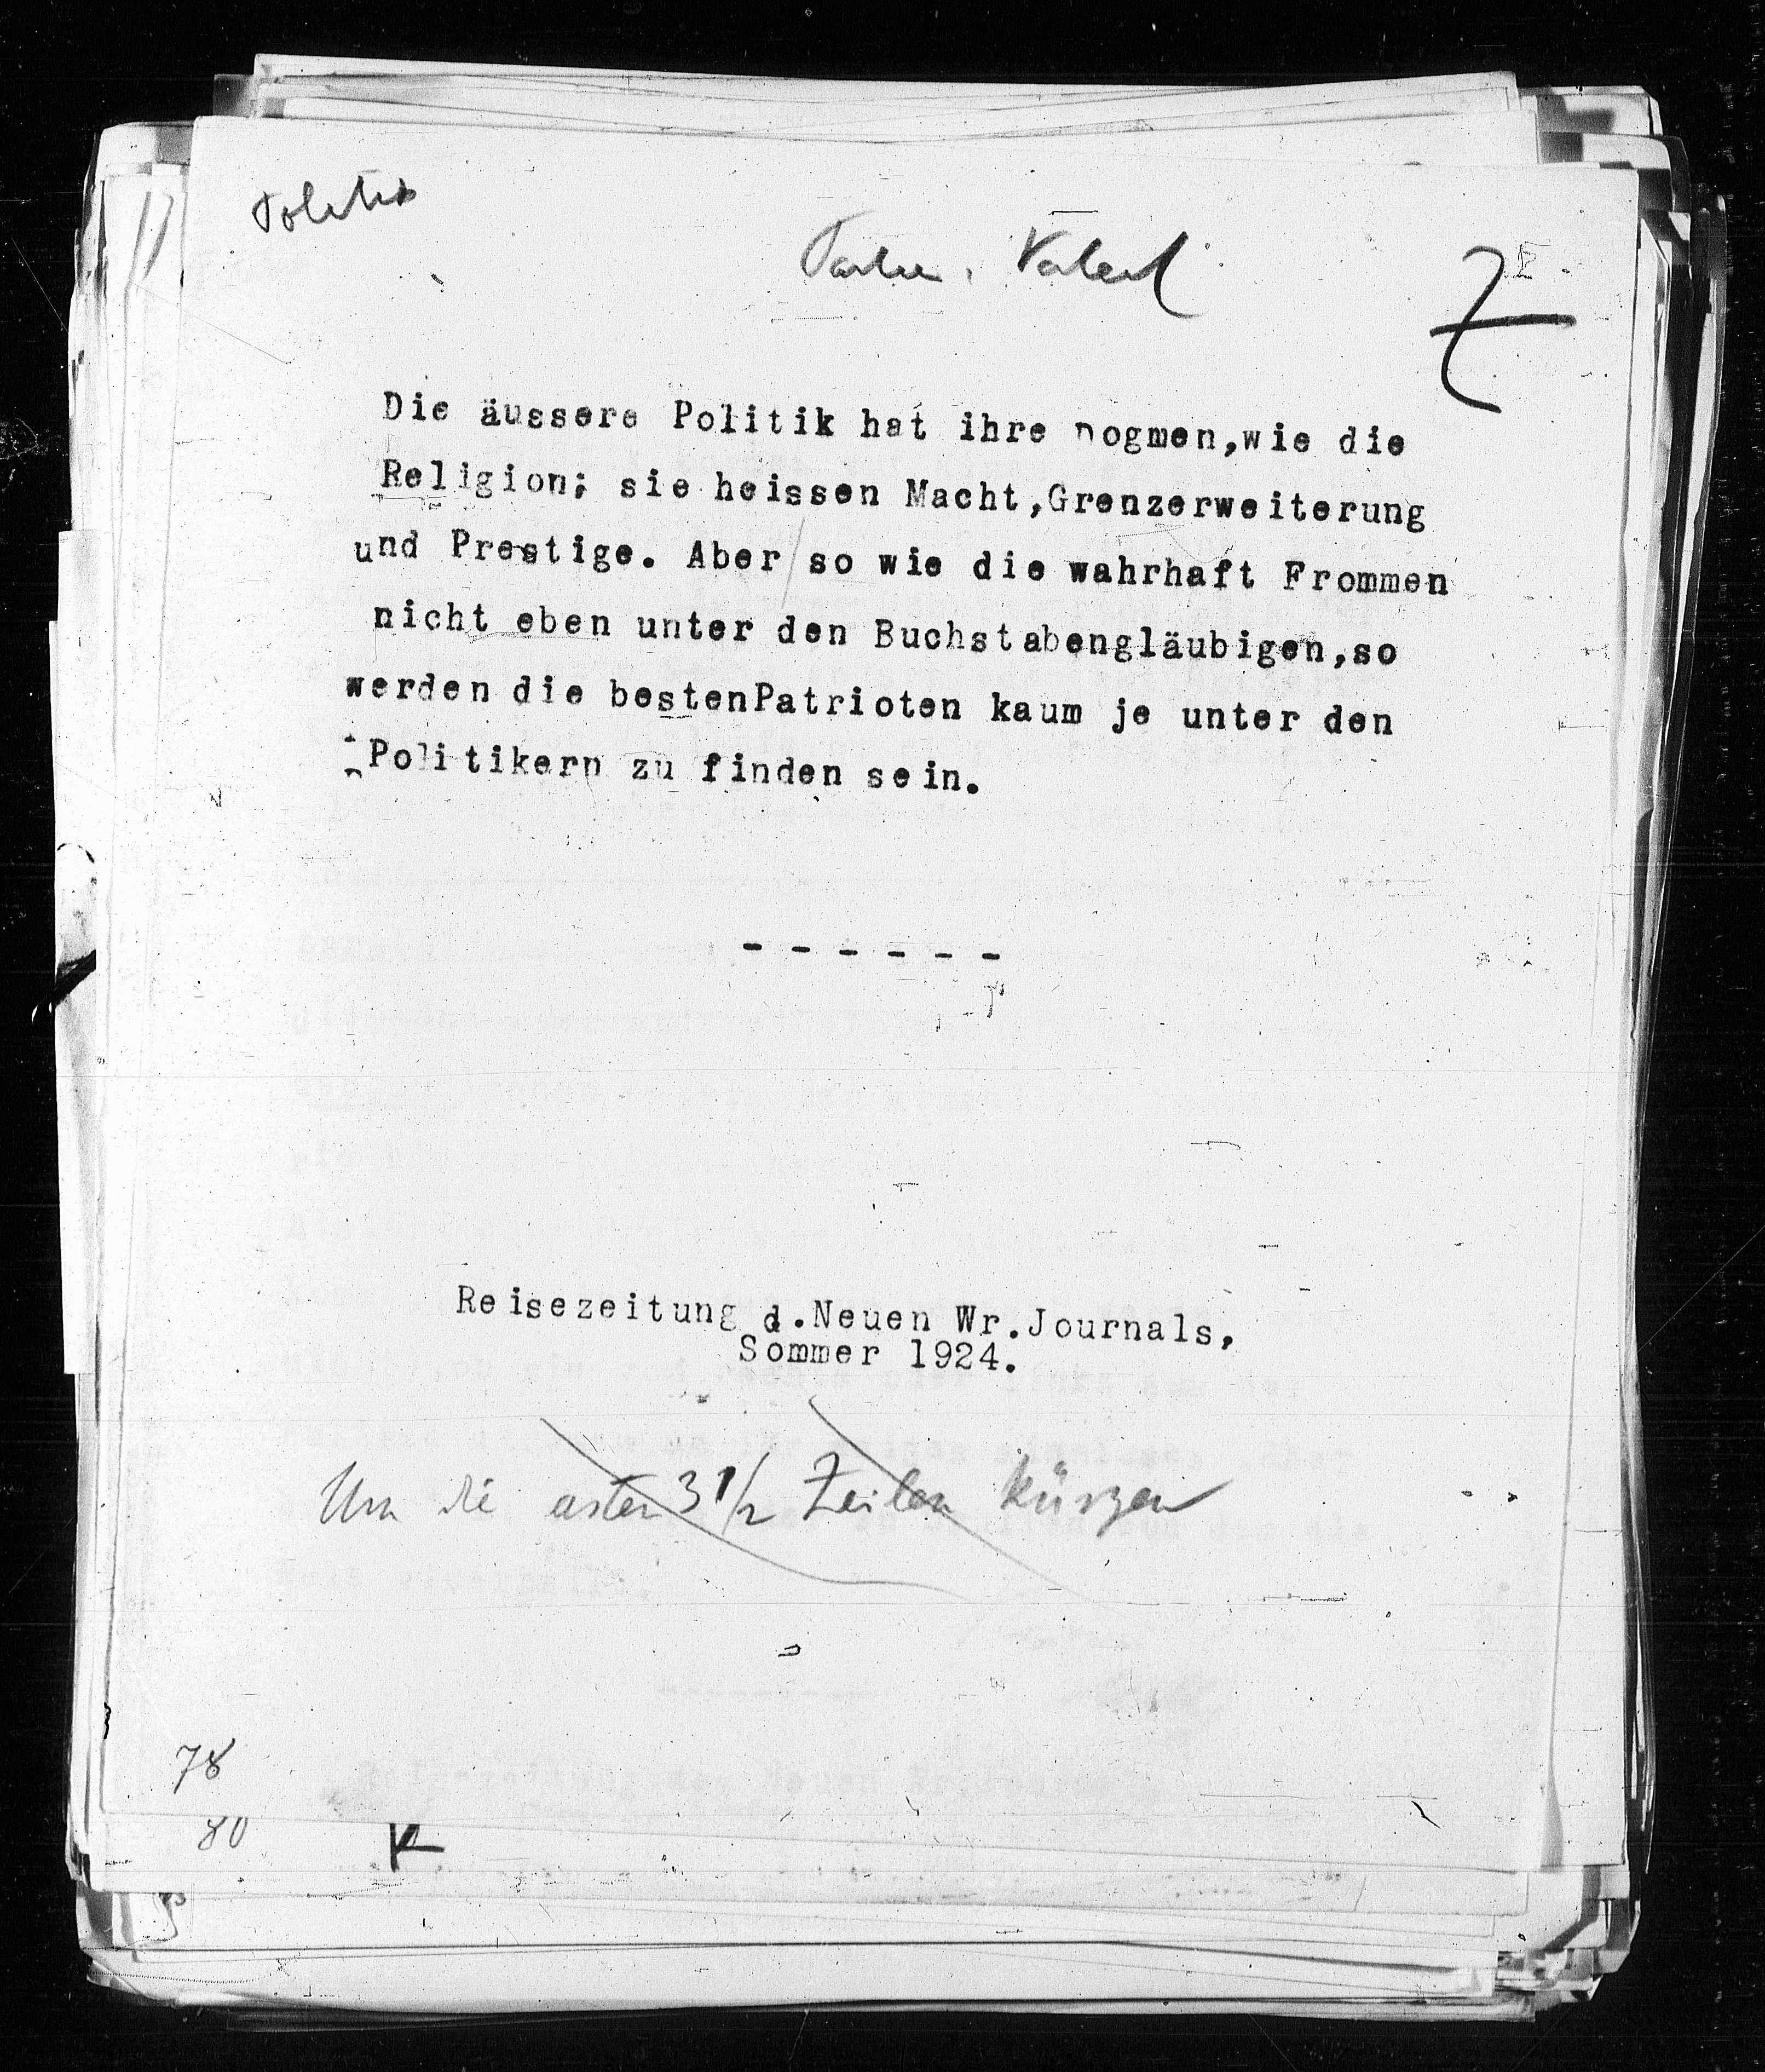 Politik
7
Die äussere Politik hat ihre Dogmen,wie die
Religion; sie heissen Macht,Grenzerweiterung
und Prestige. Aber so wie die wahrhaft Frommen
nicht eben unter den Buchstabengläubigen,so
werden die bestenPatrioten kaum je unter den
Politikern zu finden sein.
- - - - - -
Reisezeitung d.Neuen Wr.Journals,
Sommer 1924.
Um die ersten 3 1/2 Zeilen kürzen
78
80
K